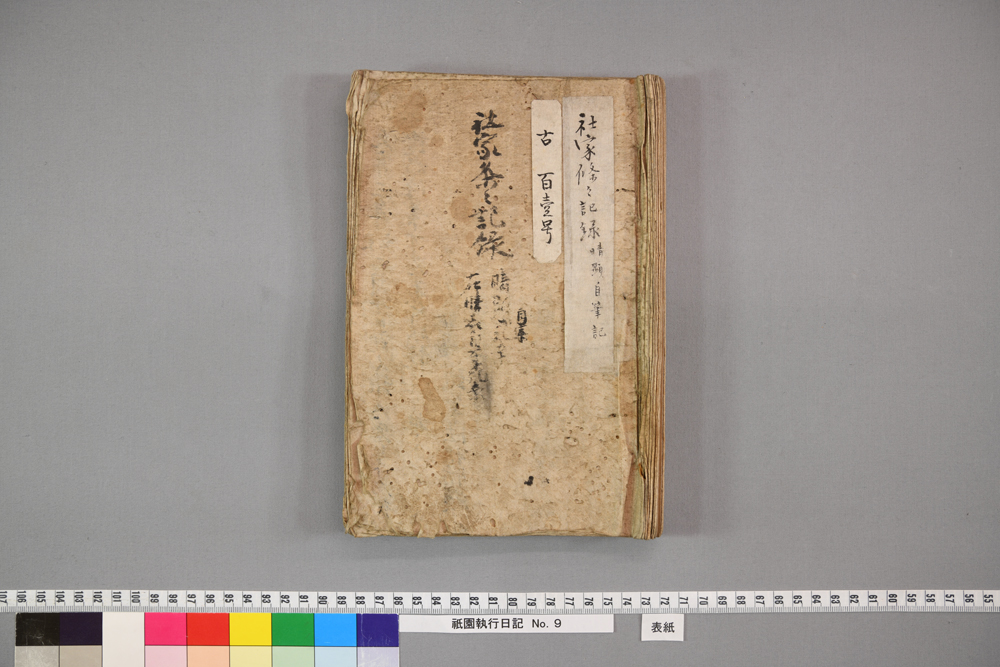 社家條々記録 晴顕自筆記
古 百壹号
社家条々記録
自筆
祇園執行日記 No. 9
表紙
107 106 105 104 103 102 101 100 99 98 97 96 95 94 93 92 91 90 89 88 87 86 85 84 83 82 81 80 79 78 77 76 75 74 73 72 71 70 69 68 67 66 65 64 63 62 61 60 59 58 57 56 55